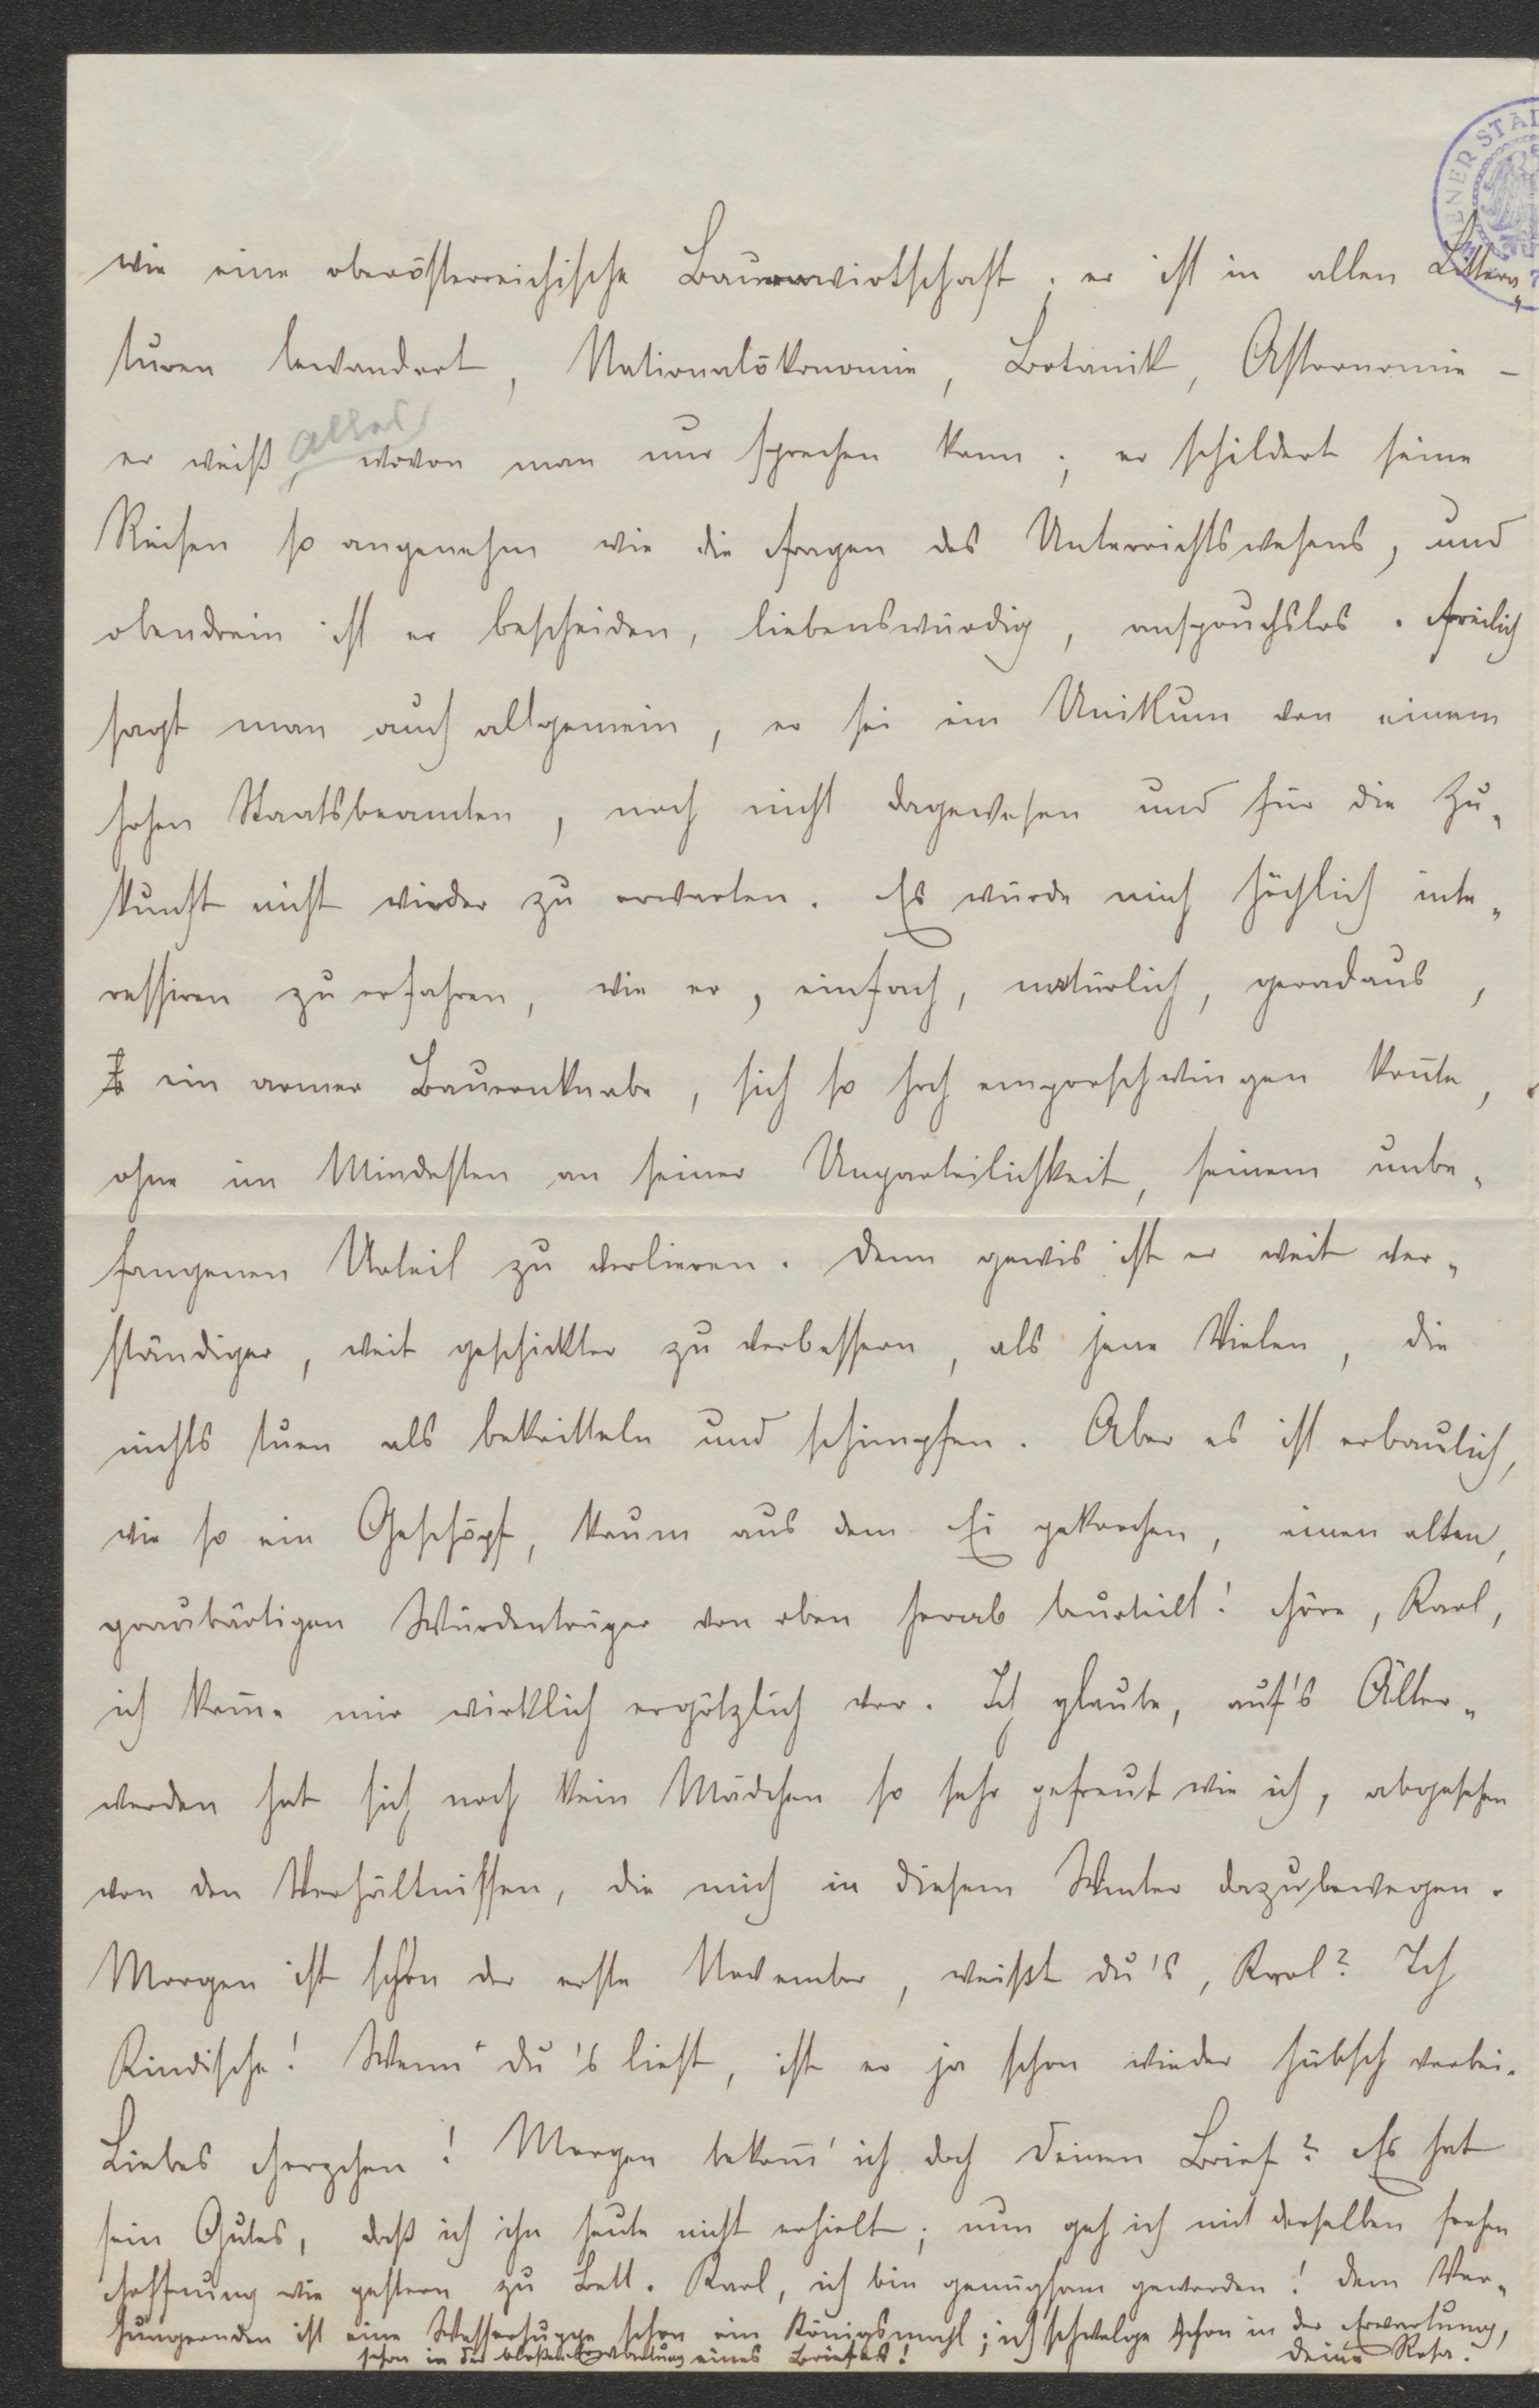 wie eine oberösterreichische Bauernwirtschaft; er ist in allen Littera„
turen bewandert, Nationalökonomie, Botanik, Astronomie –
er weiß alles, wovon man nur sprechen kann; er schildert seine
Reisen so angenehm wie die Fragen des Unterrichtswesens, und
obendrein ist er bescheiden, liebenswürdig, anspruchslos. Freilich
sagt man auch allgemein, er sei ein Unikum von einem
hohen Staatsbeamten, noch nicht dagewesen und für die Zu„
kunft nicht wieder zu erwarten. Es würde mich höchlich inte„
ressiren zu erfahren, wie er, einfach, natürlich, geradaus,
ein armer Bauernknabe, sich so hoch emporschwingen kon̄te,
ohne im Mindesten an seiner Unparteilichkeit, seinem unbe„
fangenen Urteil zu verlieren. Denn gewis ist er weit ver„
ständiger, weit geschickter zu verbessern, als jene Vielen, die
nichts tuen als bekritteln und schimpfen. Aber es ist erbaulich,
wie so ein Geschöpf, kaum aus dem Ei gekrochen, einen alten,
graubärtigen Würdenträger von oben herab beurteilt! Höre, Karl,
ich kom̄e mir wirklich ergötzlich vor. Ich glaube, auf's Älter„
werden hat sich noch kein Mädchen so sehr gefreut wie ich, abgesehen
von den Verhältnissen, die mich in diesem Winter dazu bewegen.
Morgen ist schon der erste November, weißt du's, Karl? Ich
Kindische! Wenn du's liest, ist er ja schon wieder hübsch vorbei.
Liebes Herzchen! Morgen bekom̄' ich doch Deinen Brief? Es hat
sein Gutes, daß ich ihn heute nicht erhielt; nun geh ich mit derselben frohen
Hoffnung wie gestern zu Bett. Karl, ich bin genügsam geworden! Dem Ver„
hungernden ist eine Wassersuppe schon ein Königsmahl; ich schwelge schon in der Erwartung,
schon in der bloßen Erwartung eines Briefes! Deine Rosa.